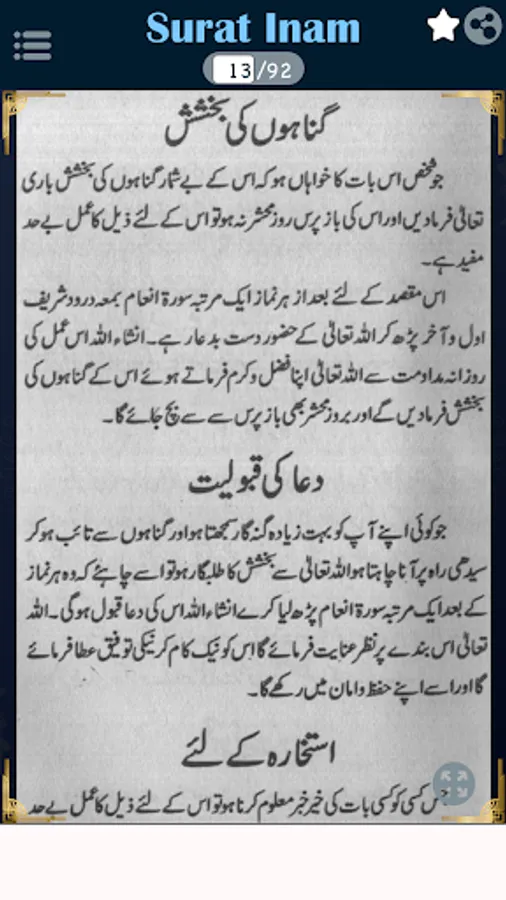 Surat Inam
13/92
گناہوں کی بخشش
جو شخص اس بات کا خواہاں ہو کہ اس کے بے شمار گناہوں کی بخشش باری
تعالیٰ فرمادیں اور اس کی باز پرس روز محشر نہ ہو تو اس کے لئے ذیل کا عمل بے حد
مفید ہے۔
اس مقصد کے لئے بعد از ہر نماز ایک مرتبہ سورۃ انعام بمعہ درود شریف
اول و آخر پڑھ کر اللہ تعالیٰ کے حضور دست بدعا رہے۔ انشاء اللہ اس عمل کی
روزانہ مداومت سے اللہ تعالیٰ اپنا فضل و کرم فرماتے ہوئے اس کے گناہوں کی
بخشش فرمادیں گے اور بروز محشر بھی باز پرس سے سے بچ جائے گا۔
دعا کی قبولیت
جو کوئی اپنے آپ کو بہت زیادہ گنہگار سمجھتا ہو اور گناہوں سے تائب ہو کر
سیدھی راہ پر آنا چاہتا ہو اللہ تعالیٰ سے بخشش کا طلبگار ہو تو اسے چاہئے کہ وہ ہر نماز
کے بعد ایک مرتبہ سورۃ انعام پڑھ لیا کرے انشاء اللہ اس کی دعا قبول ہوگی۔ اللہ
تعالیٰ اس بندے پر نظر عنایت فرمائے گا اس کو نیک کام کرنیکی توفیق عطا فرمائے
گا اور اسے اپنے حفظ و امان میں رکھے گا۔
استخارہ کے لئے
جس کسی کو کسی بات کی خیر خبر معلوم کرنا ہو تو اس کے لئے ذیل کا عمل بے حد